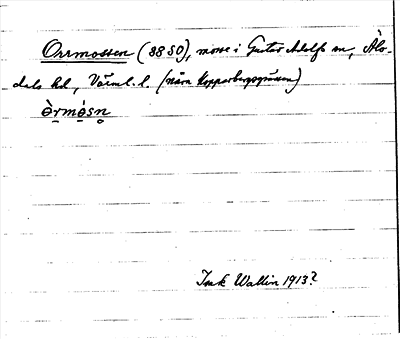 Orrmossen (8850), mosse i Gustav Adolfs sn, Älv-
dals hd, Värml. l. (nära Kopparbergsgränsen)
òrmósn
Imk Wallin 1913?